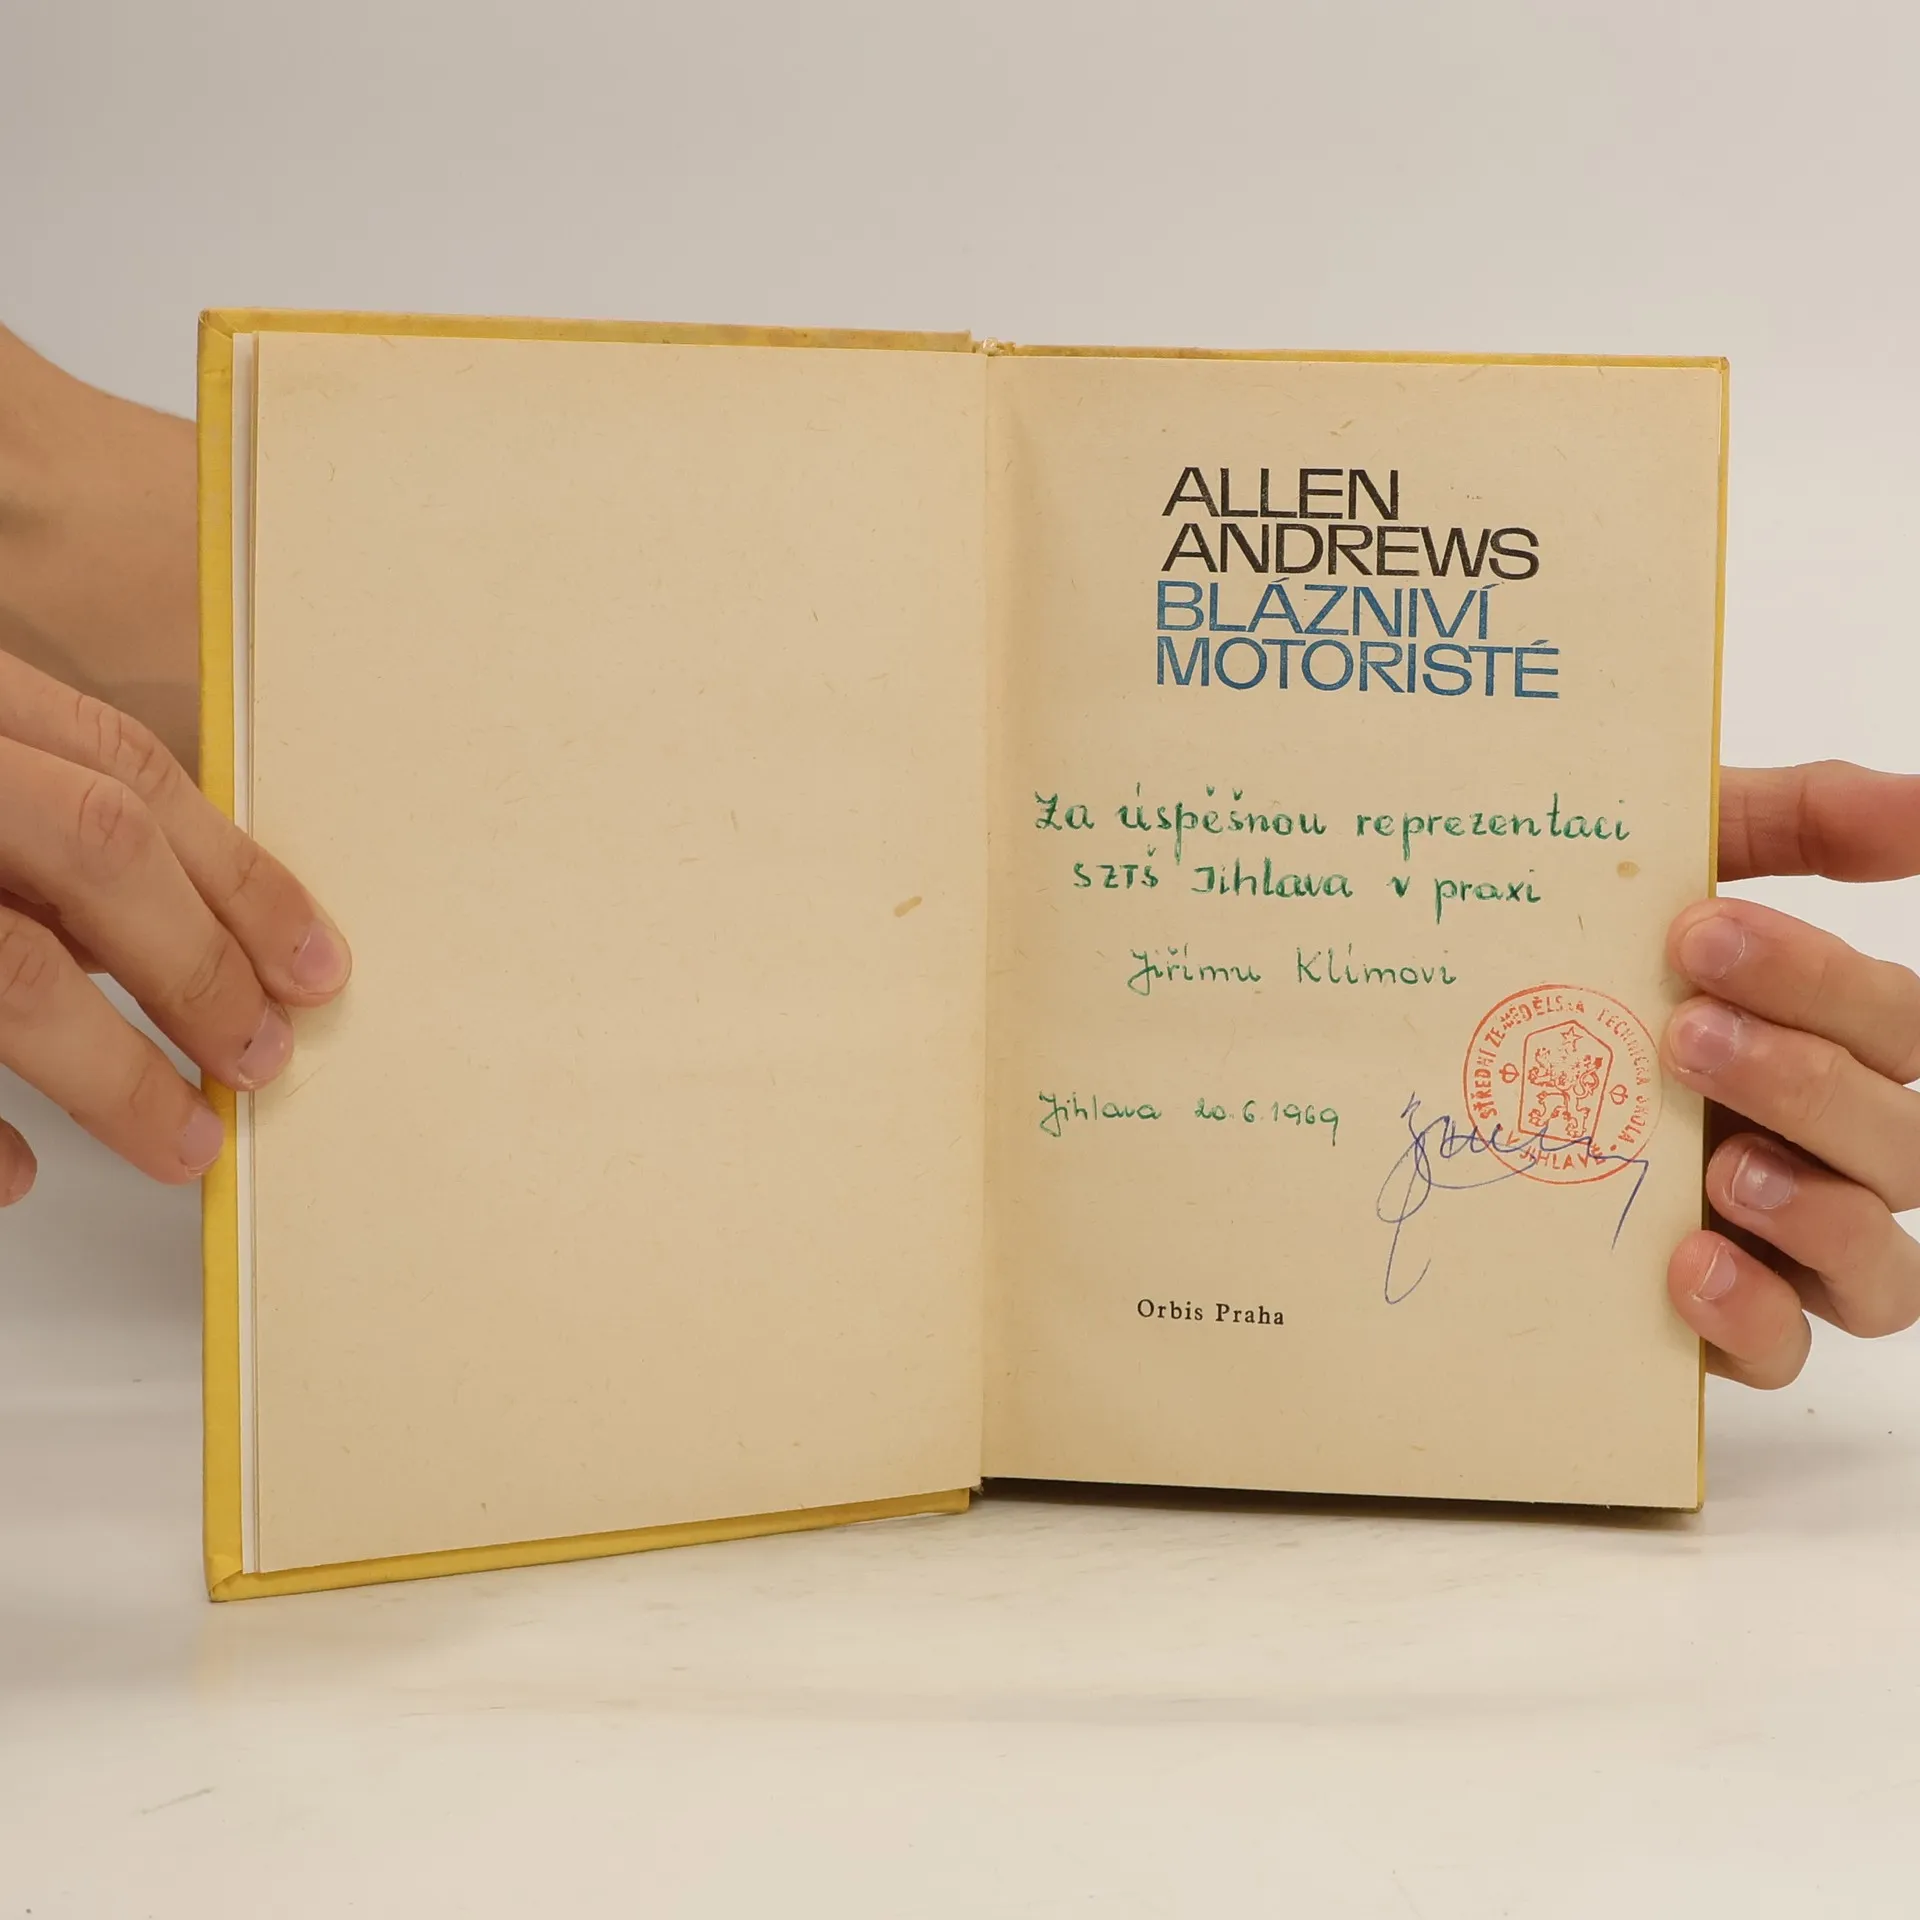 ALLEN
ANDREWS
BLÁZNIVÍ
MOTORISTÉ
Za úspěšnou reprezentaci
SZTŠ Jihlava v praxi
Jiřímu Klímovi
STŘEDNÍ ZEMĚDĚLSKÁ TECHNICKÁ ŠKOLA
V JIHLAVĚ
Jihlava 20.6.1969
Orbis Praha